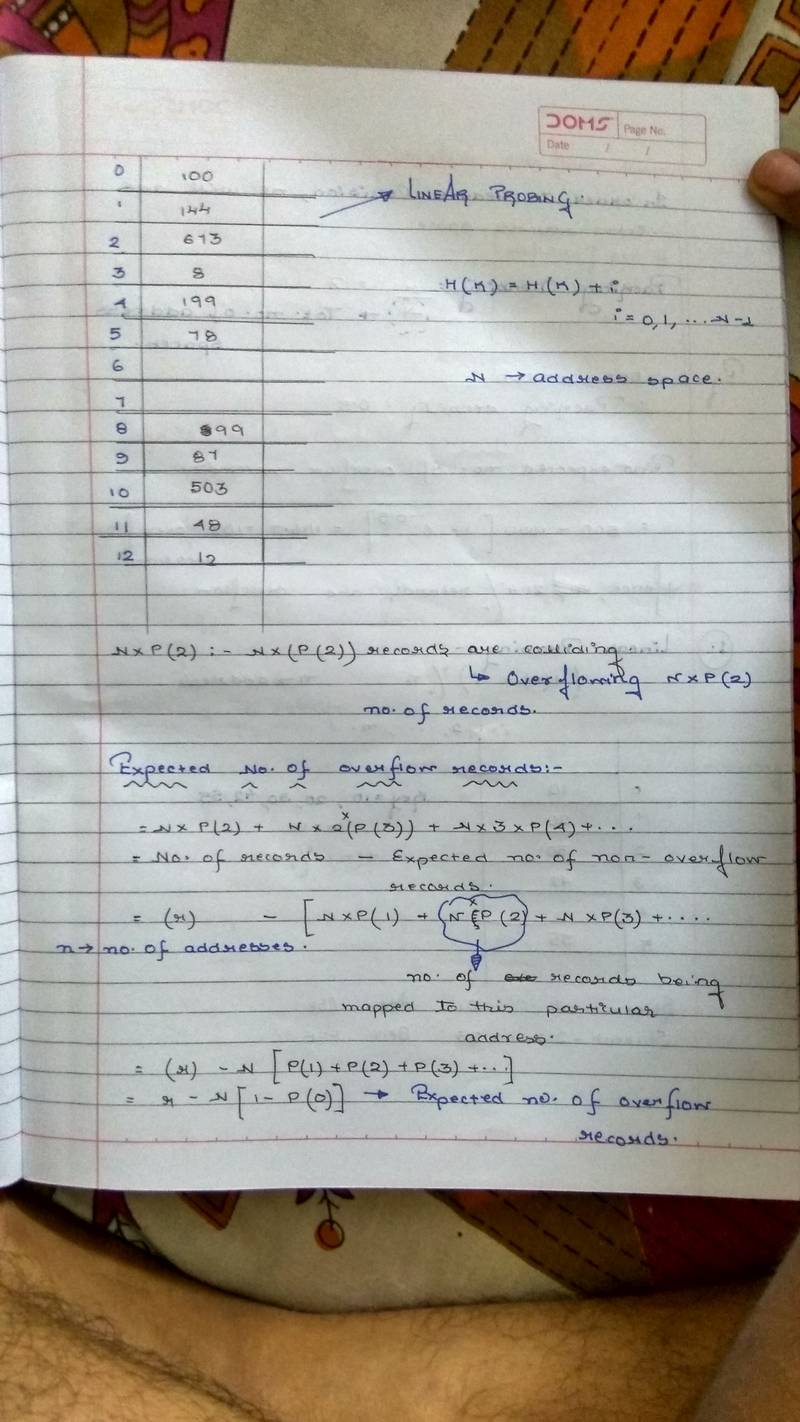 DOMS Page No.
Date / /
→ LINEAR PROBING.
0 100
1 144
2 613
3 8
4 199
5 78
6
7
8 899
9 87
10 503
11 48
12 12
H(K) = H(K) + i
i = 0, 1, ... N-1
N → address space.
N × P(2) :- N × (P(2)) records are colliding.
↳ Overflowing N × P(2)
no. of records.
Expected No. of overflow records:-
= N × P(2) + N × 2 × (P(3)) + N × 3 × P(4) + ...
= No. of records - Expected no. of non-overflow
records.
= (r) - [N × P(1) + N × P(2) + N × P(3) + ....
n → no. of addresses.
no. of records being
mapped to this particular
address.
= (r) - N [P(1) + P(2) + P(3) + ...]
= r - N [1 - P(0)] → Expected no. of overflow
records.